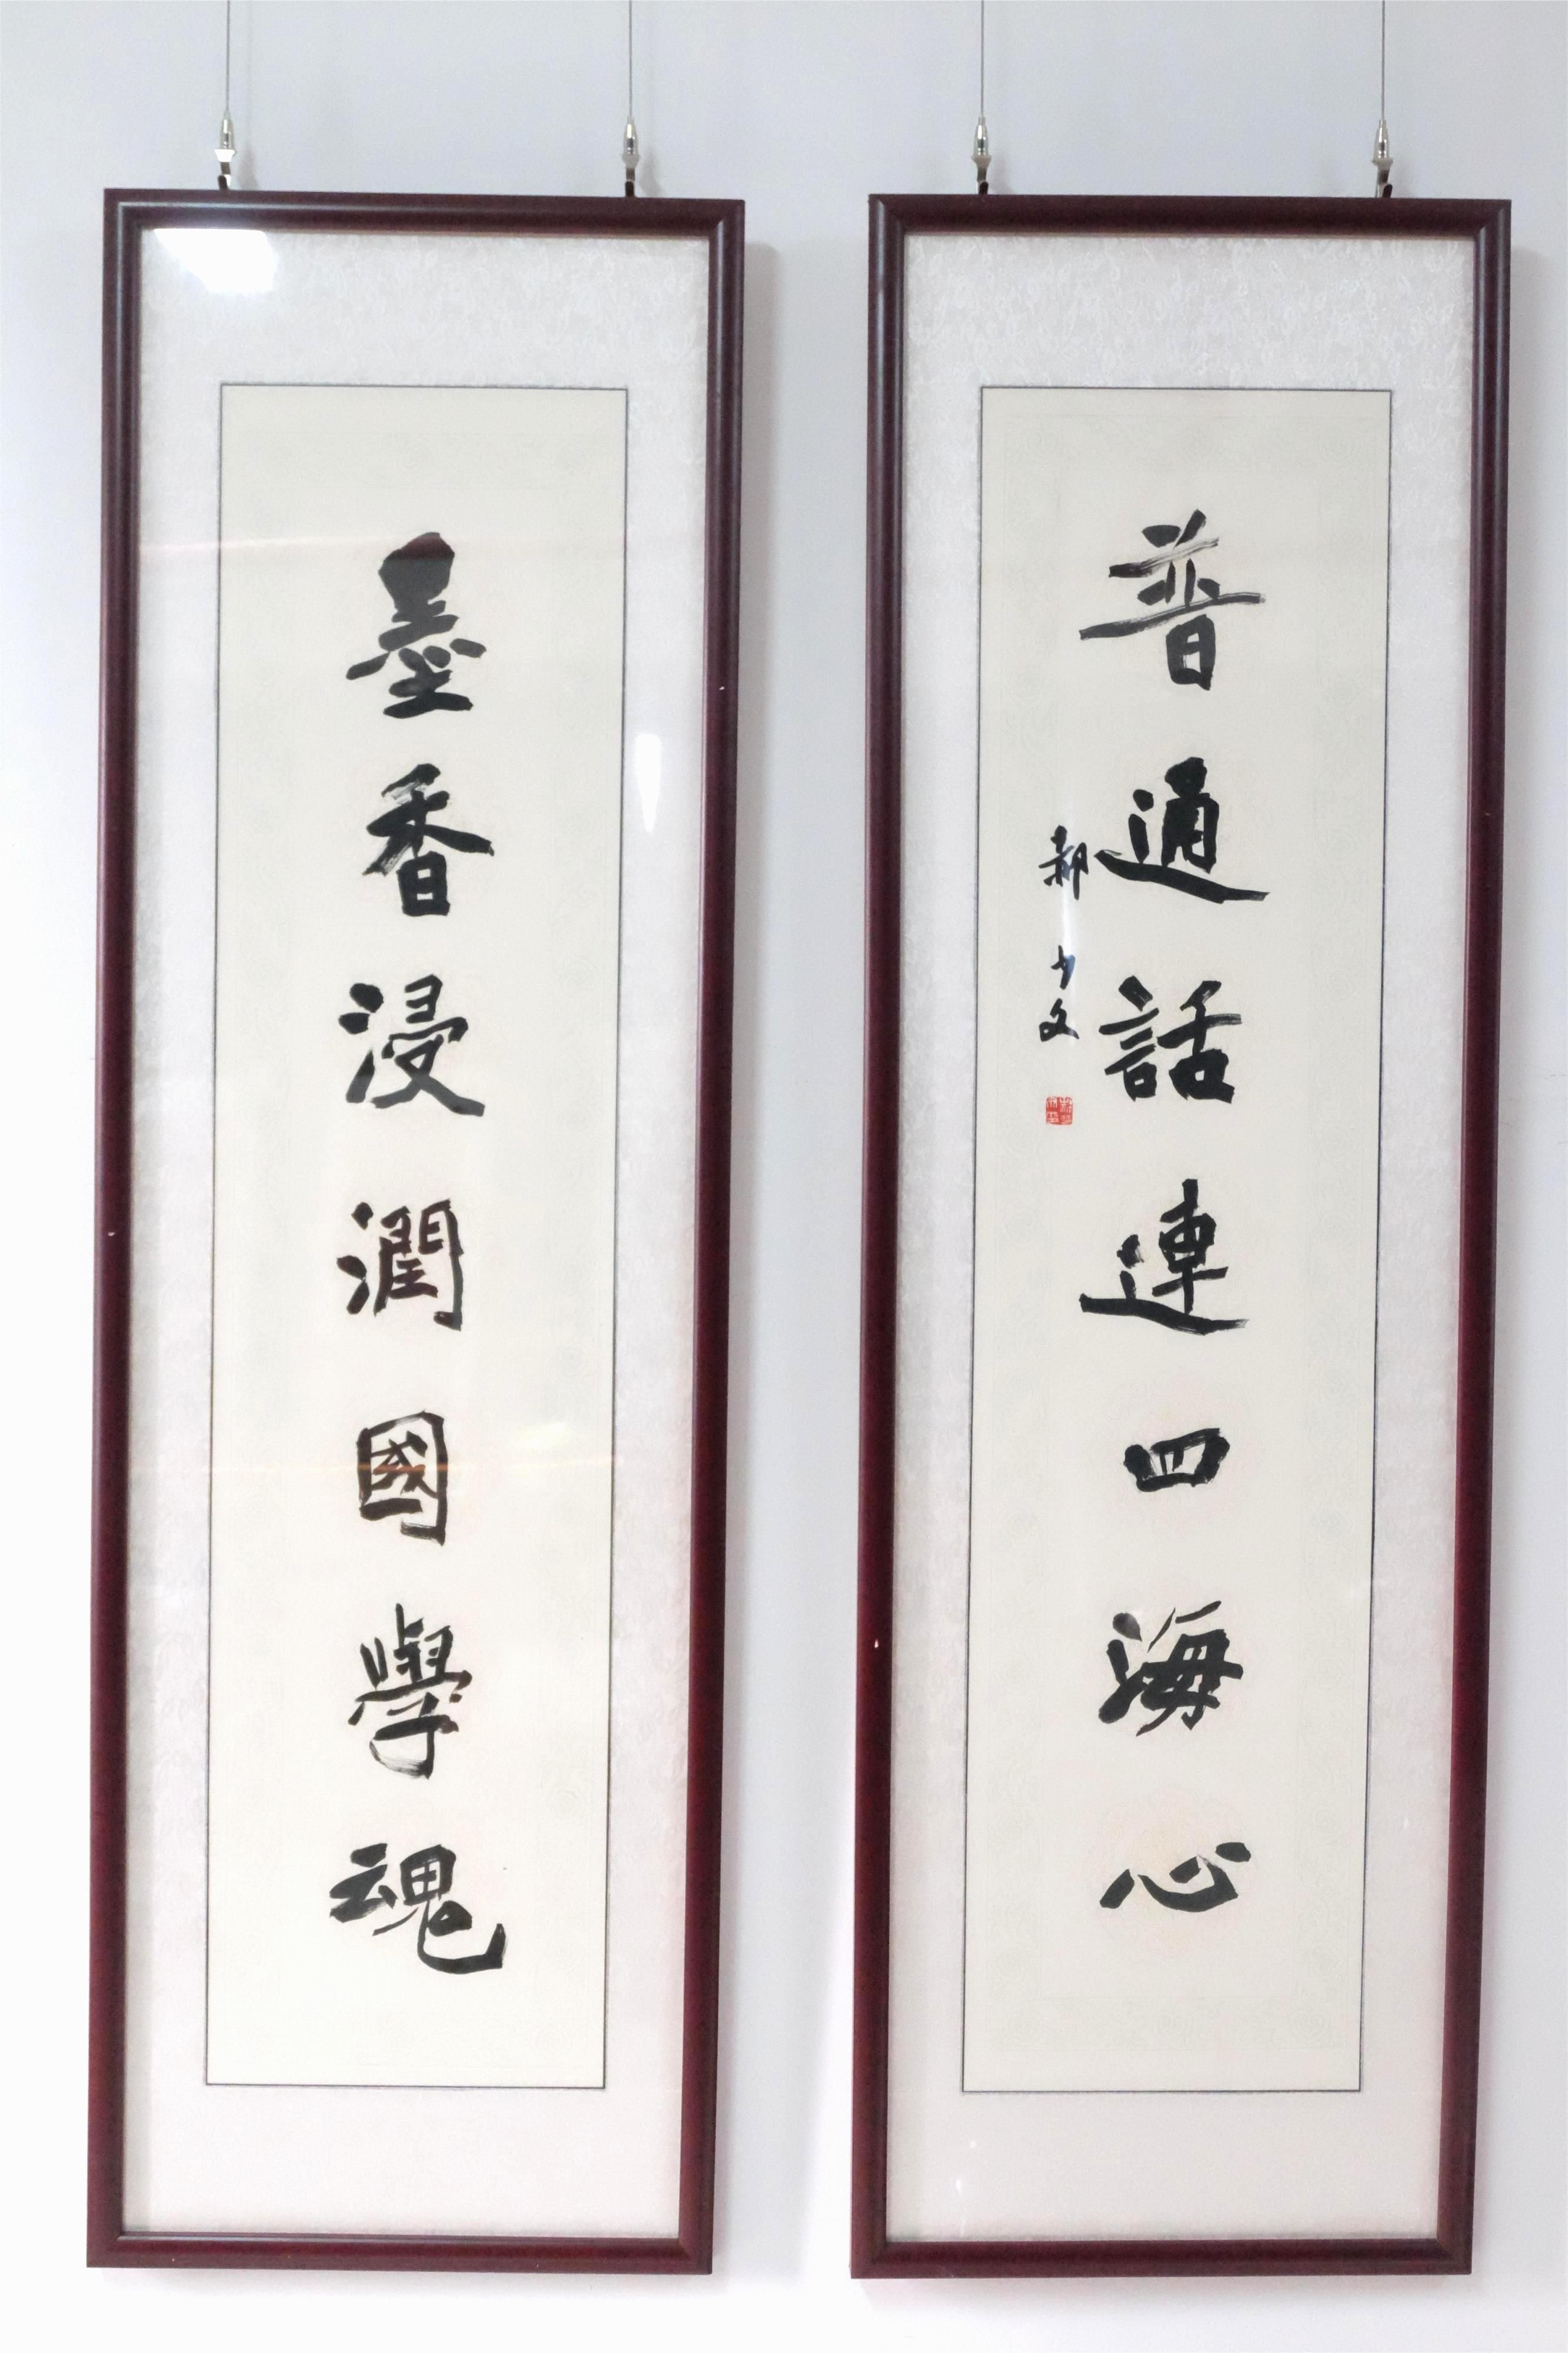 普通話連四海心
郝少文
墨香浸潤國學魂